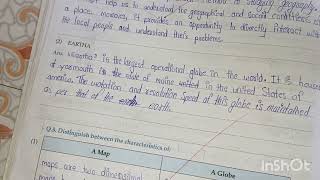 help us to understand the geographical and social conditions of
a place. Moreover, it provides an opportunity to directly interact with
the local people and understand their problems.
(2) EARTHA
Ans is the largest operational globe in the world. It is housed
at yarmouth in the state of maine in the United States of
america. The rotation and revolution speed of this globe is maintained
as per that of the earth.
Q.3. Distinguish between the characteristics of:
(1)
A Map
A Globe
maps are two dimensional
InShOt